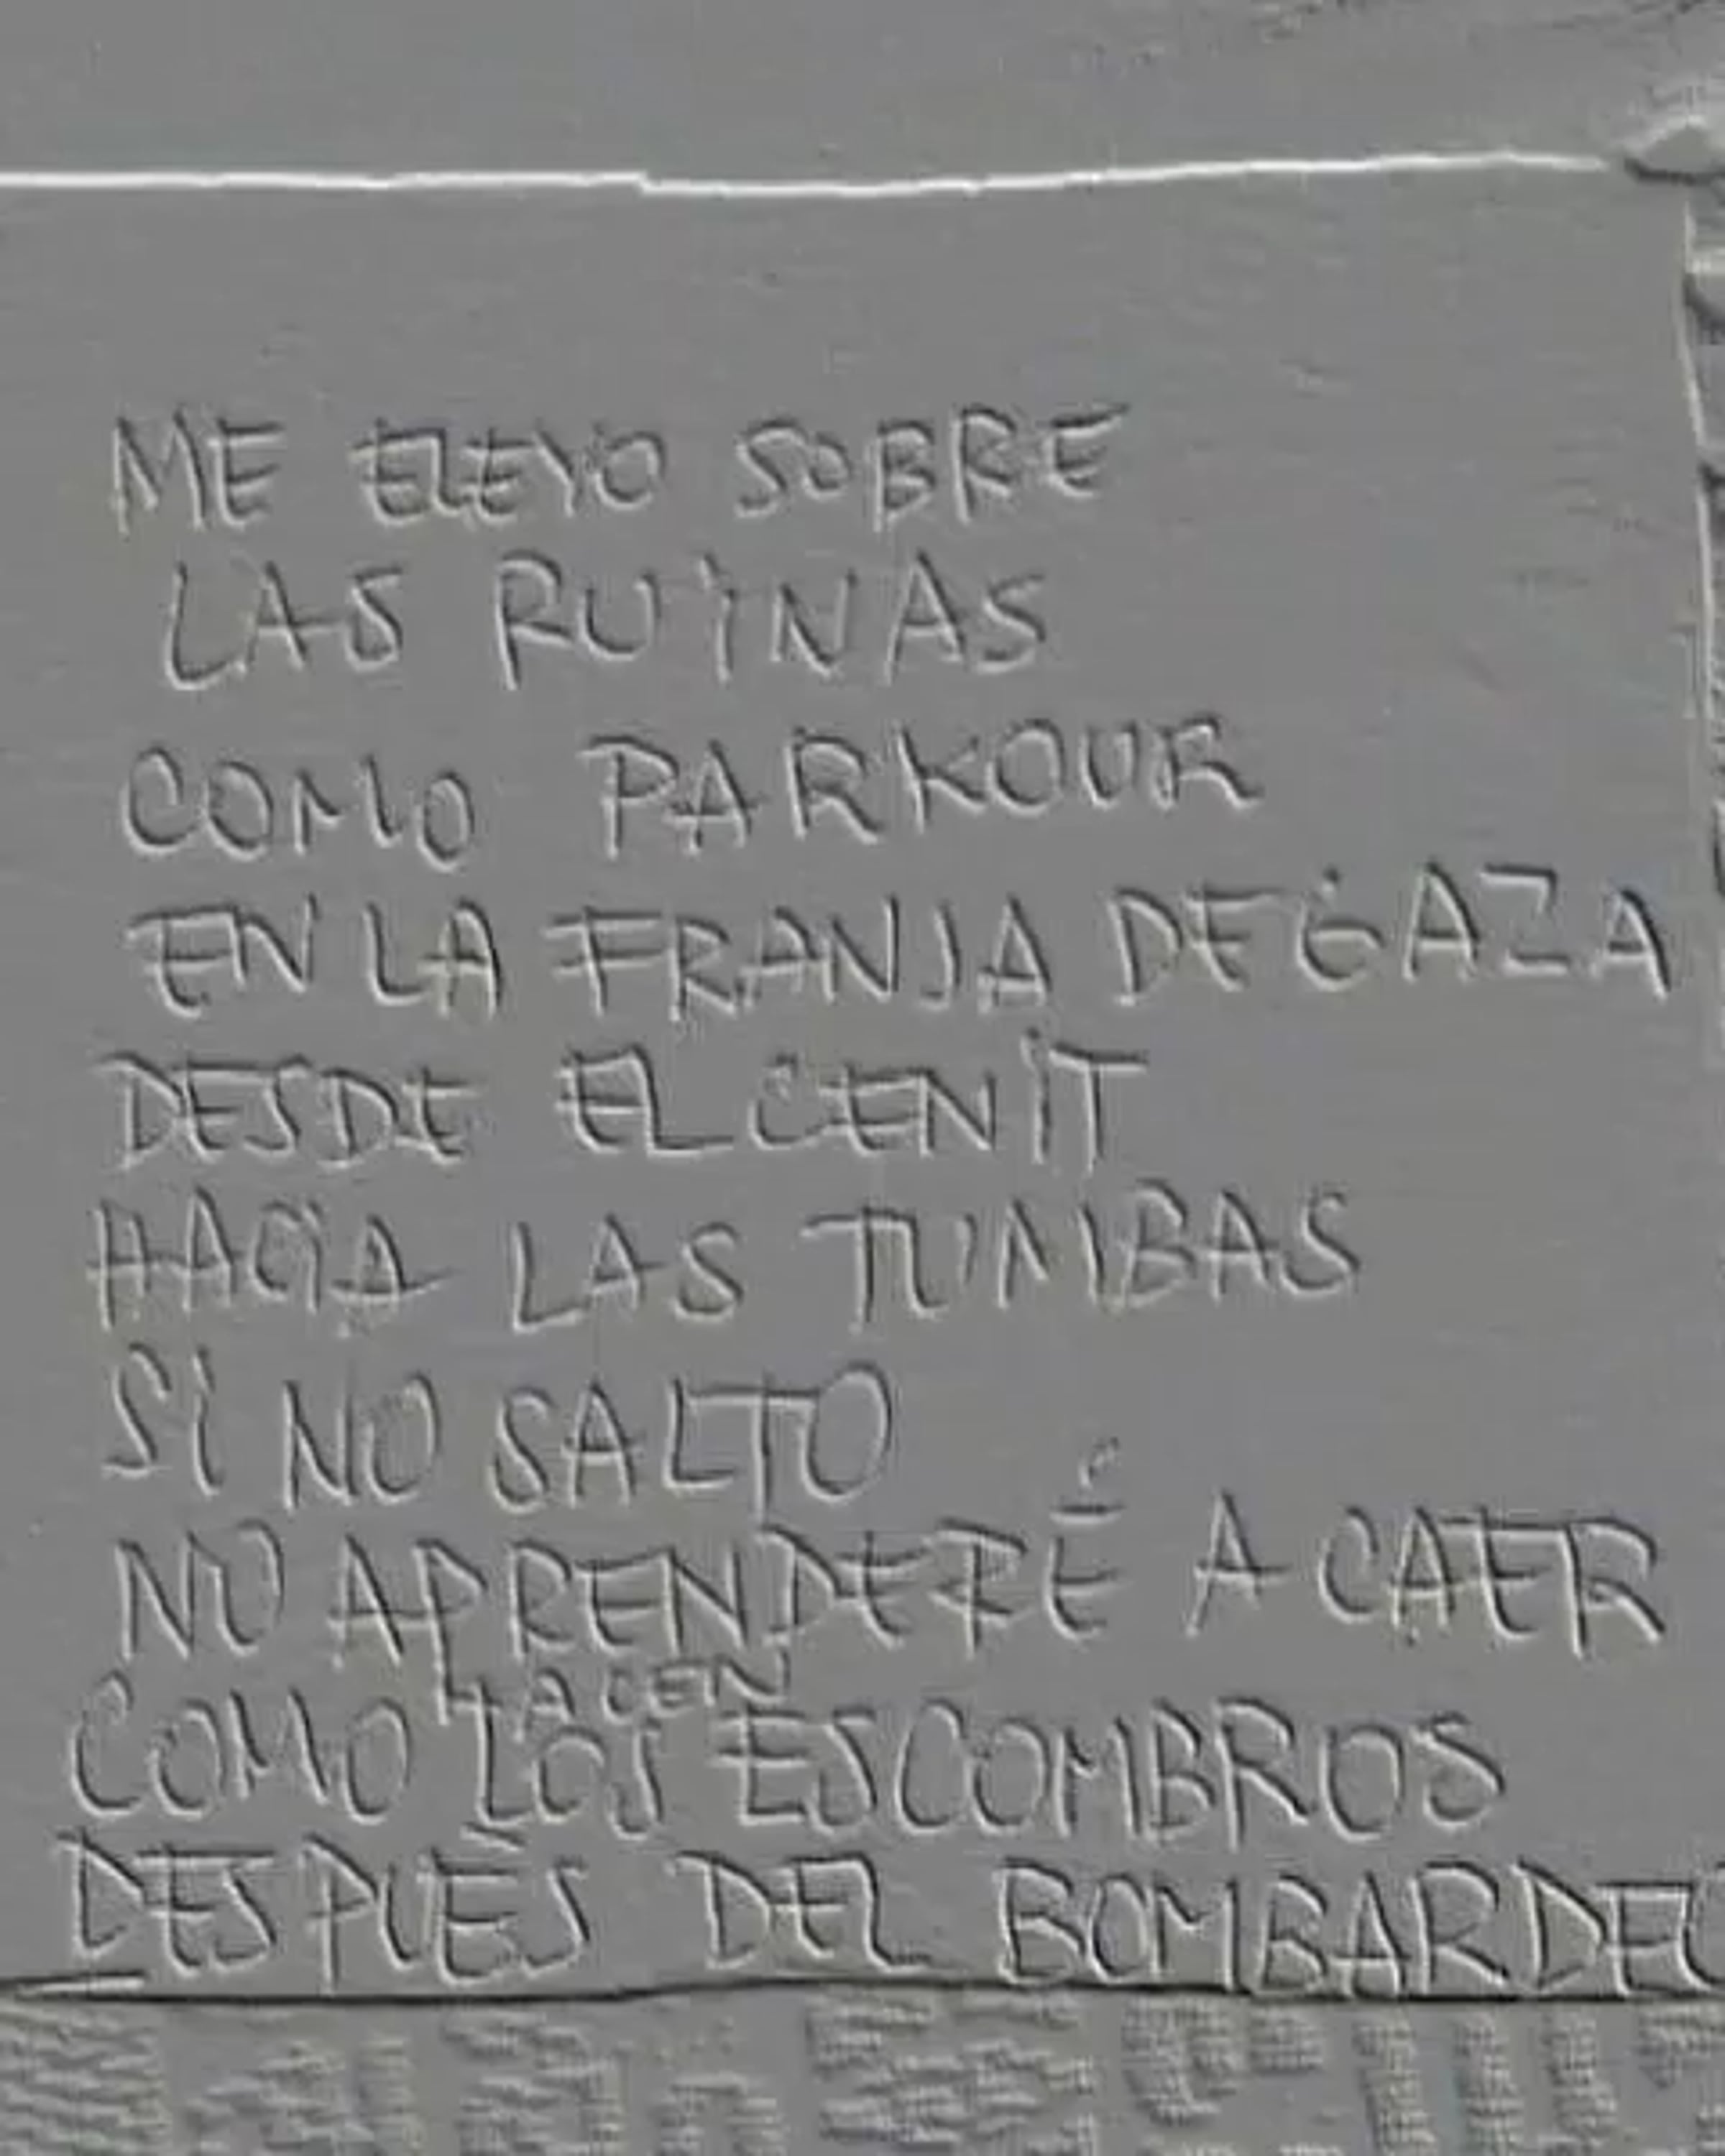 ME ELEVO SOBRE
LAS RUINAS
COMO PARKOUR
EN LA FRANJA DE GAZA
DESDE EL CENIT
HACIA LAS TUMBAS
SI NO SALTO
NO APRENDERÉ A CAER
HACEN
COMO LOS ESCOMBROS
DESPUÉS DEL BOMBARDEO